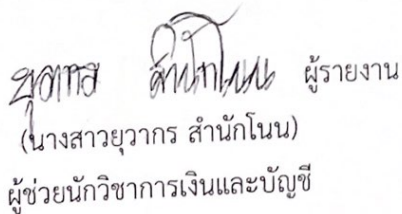 ยุวากร สำนักโนน ผู้รายงาน
(นางสาวยุวากร สำนักโนน)
ผู้ช่วยนักวิชาการเงินและบัญชี